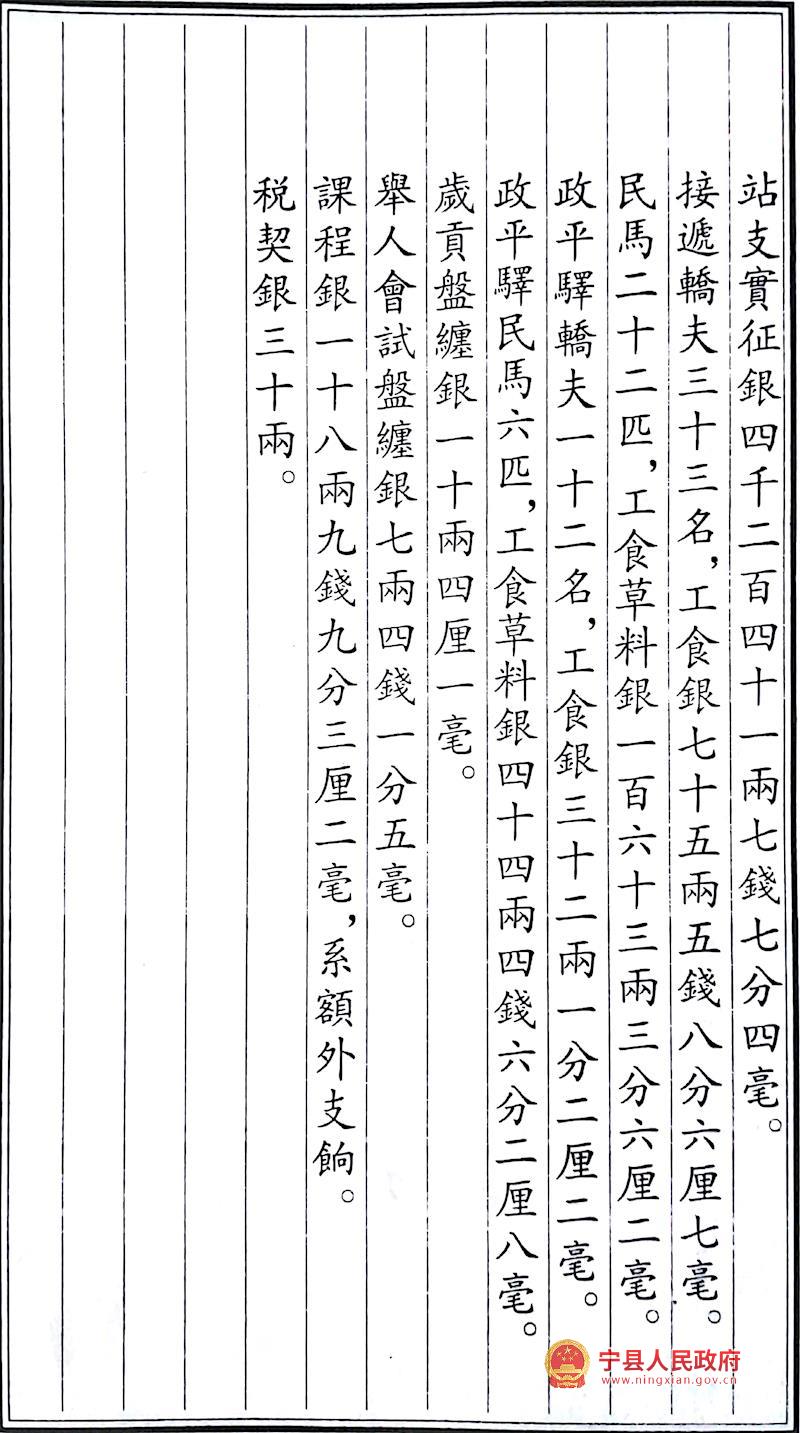 站支實征銀四千二百四十一兩七錢七分四毫。
接遞轎夫三十三名，工食銀七十五兩五錢八分六厘七毫。
民馬二十二匹，工食草料銀一百六十三兩三分六厘二毫。
政平驛轎夫一十二名，工食銀三十二兩一分二厘二毫。
政平驛民馬六匹，工食草料銀四十四兩四錢六分二厘八毫。
歲貢盤纏銀一十兩四厘一毫。
舉人會試盤纏銀七兩四錢一分五毫。
課程銀一十八兩九錢九分三厘二毫，系額外支餉。
税契銀三十兩。
宁县人民政府
www.ningxian.gov.cn